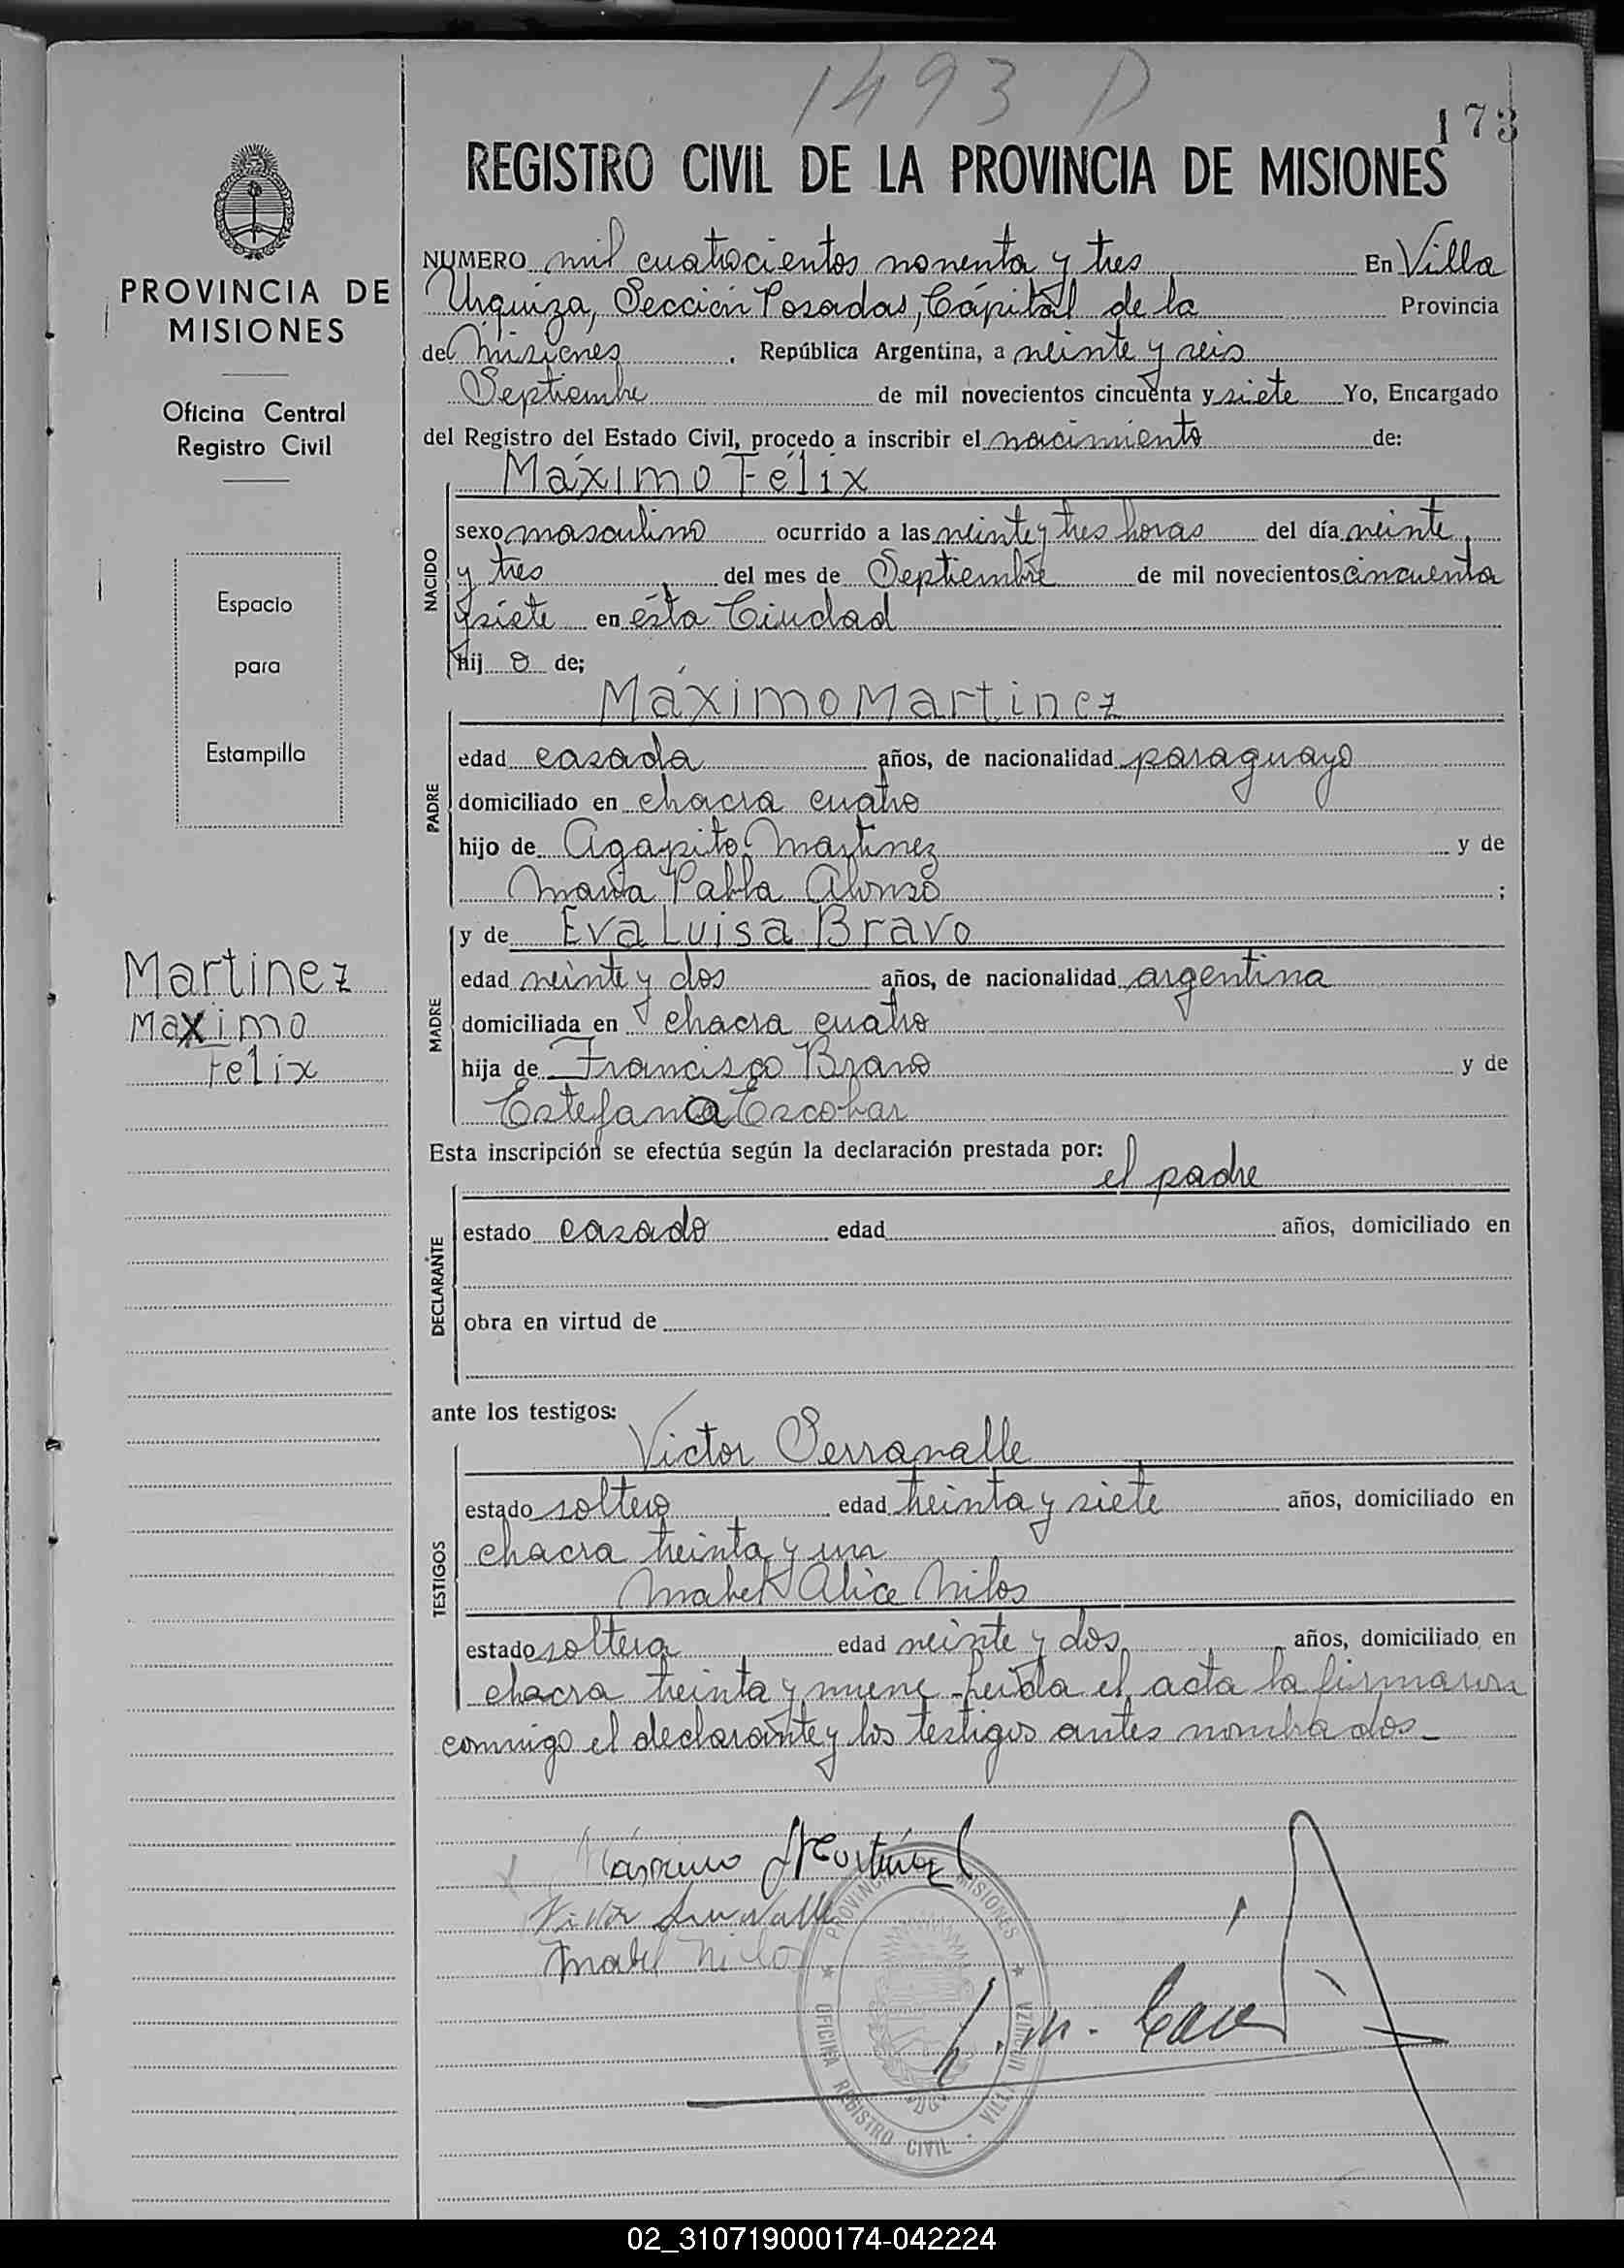 1493 D
173
REGISTRO CIVIL DE LA PROVINCIA DE MISIONES
NUMERO mil cuatrocientos noventa y tres En Villa
Urquiza, Sección Posadas, Cápital de la Provincia
de Misiones. República Argentina, a veinte y seis
Septiembre de mil novecientos cincuenta y siete Yo, Encargado
del Registro del Estado Civil, procedo a inscribir el nacimiento de:
Máximo Félix
NACIDO
sexo masculino ocurrido a las veinte y tres horas del día veinte
y tres del mes de Septiembre de mil novecientos cincuenta
y siete en ésta Ciudad
hij o de;
Máximo Martinez
PADRE
edad casada años, de nacionalidad paraguayo
domiciliado en chacra cuatro
hijo de Agapito Martinez y de
María Pabla Alonso ;
y de Eva Luisa Bravo
MADRE
edad veinte y dos años, de nacionalidad argentina
domiciliada en chacra cuatro
hija de Francisco Bravo y de
Estefana Escobar
Esta inscripción se efectúa según la declaración prestada por:
el padre
DECLARANTE
estado casado edad años, domiciliado en
obra en virtud de
ante los testigos:
Victor Serravalle
TESTIGOS
estado soltero edad treinta y siete años, domiciliado en
chacra treinta y un
Mabel Alice Nilos
estado soltera edad veinte y dos años, domiciliado en
chacra treinta y nueve - Leida el acta la firmaron
conmigo el declarante y los testigos antes nombrados -
Máximo Martínez
Victor Serravalle
Mabel Nilos
PROVINCIA MISIONES
OFICINA REGISTRO CIVIL · VILLA URQUIZA
PROVINCIA DE
MISIONES
Oficina Central
Registro Civil
Espacio
para
Estampilla
Martinez
Maximo
Félix
02_310719000174-042224